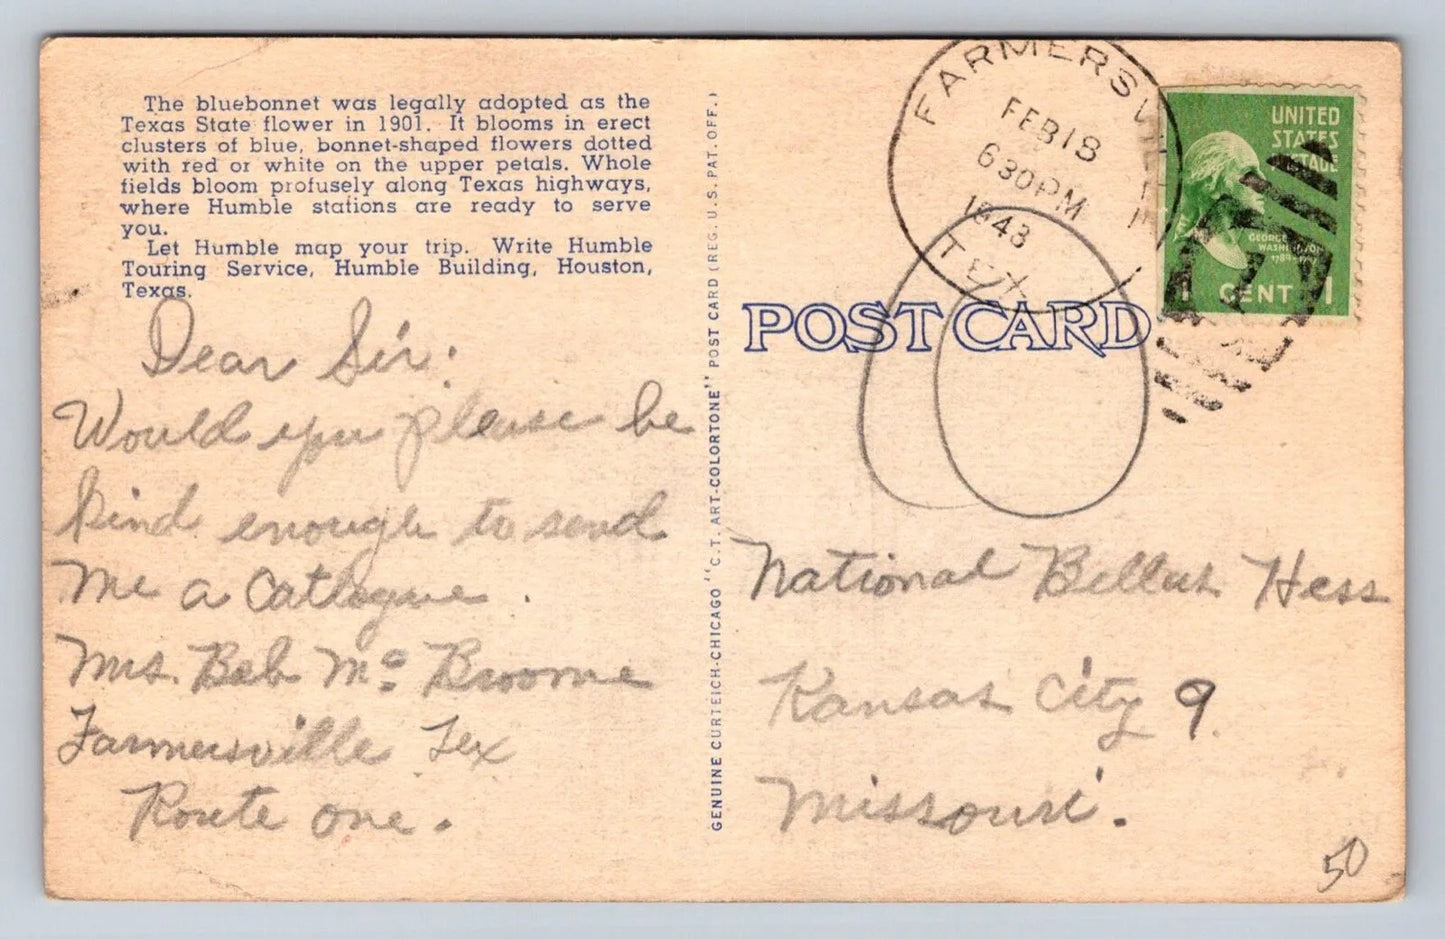 The bluebonnet was legally adopted as the
Texas State flower in 1901. It blooms in erect
clusters of blue, bonnet-shaped flowers dotted
with red or white on the upper petals. Whole
fields bloom profusely along Texas highways,
where Humble stations are ready to serve
you.
Let Humble map your trip. Write Humble
Touring Service, Humble Building, Houston,
Texas.
Dear Sir:
Would you please be
kind enough to send
me a Catlogue.
Mrs. Bab Mc Broome
Farmersville Tex
Route one.
GENUINE CURTEICH-CHICAGO "C.T. ART-COLORTONE" POST CARD (REG. U.S. PAT. OFF.)
FARMERSVILLE
FEB 18
630PM
1943
TEX
UNITED
STATES
POSTAGE
GEORGE
WASHINGTON
1789-1797
1 CENT 1
POST CARD
National Bellas Hess
Kansas City 9.
Missouri.
50